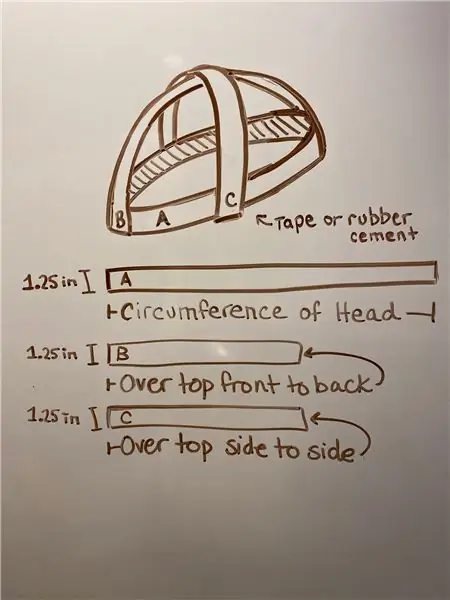 B A C
Tape or rubber
cement
1.25 in A
Circumference of Head
1.25 in B
Over top front to back
1.25 in C
Over top side to side